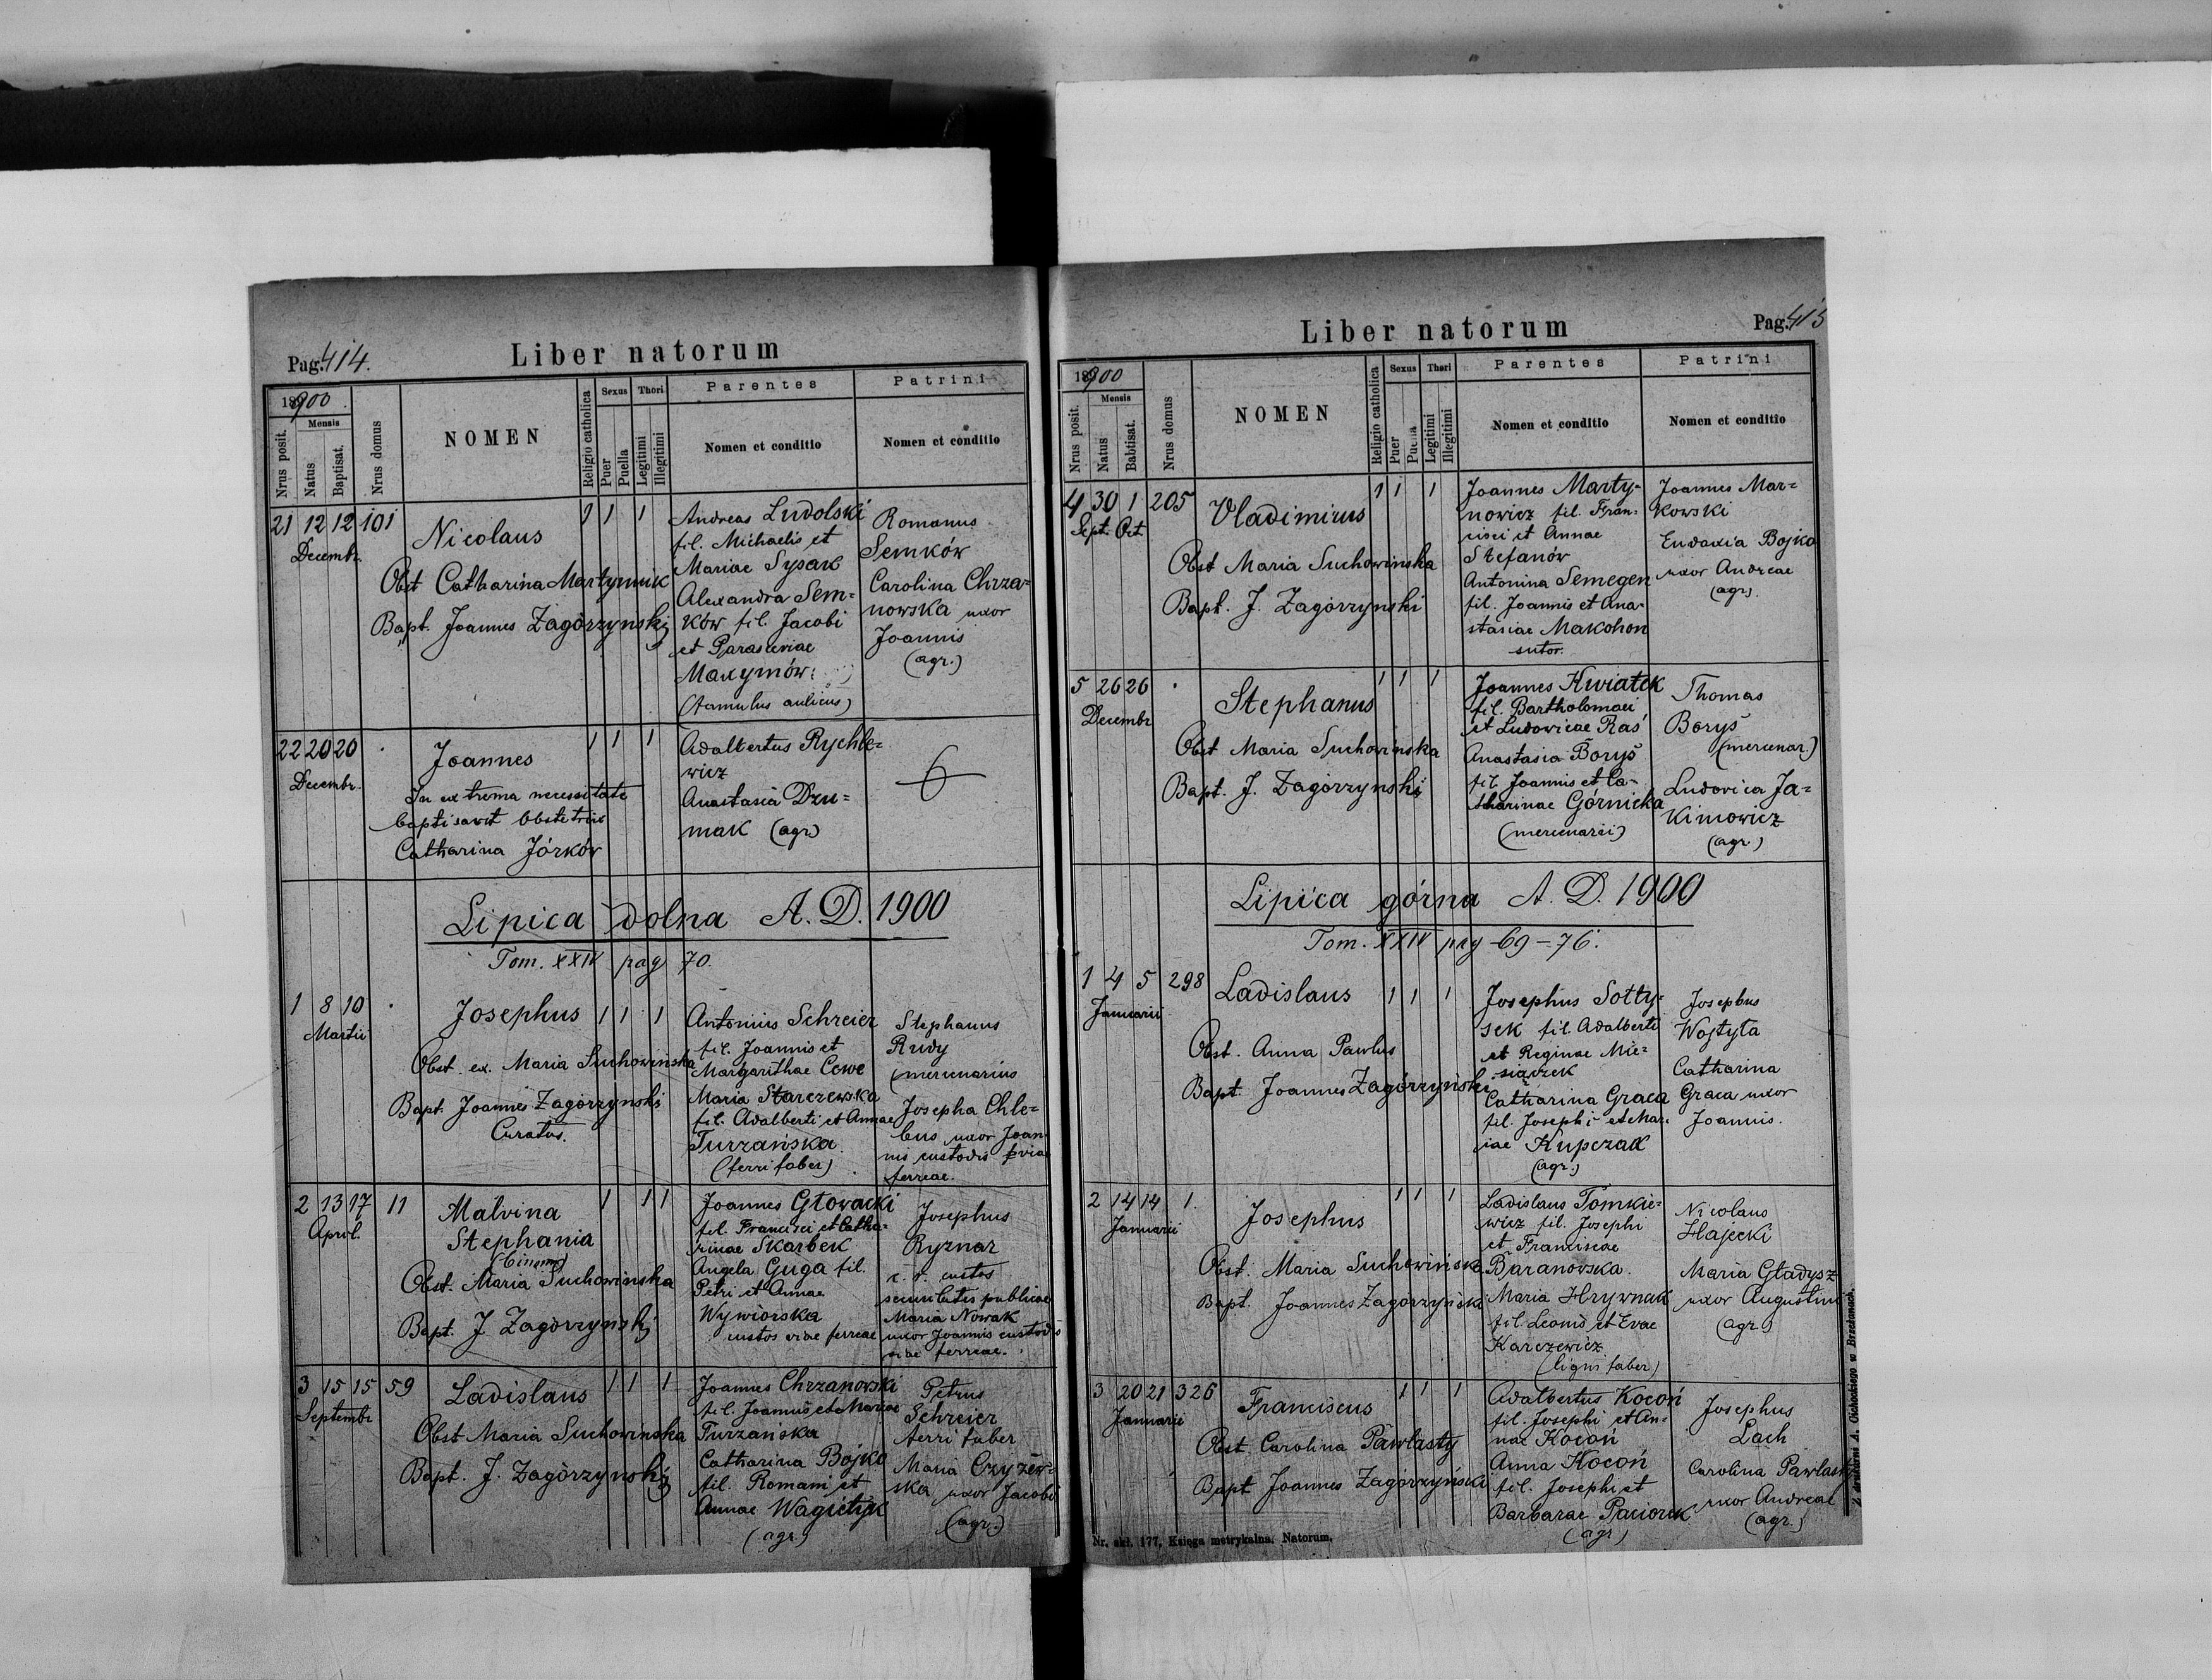 Pag. 414.
Liber natorum
1900
Nrus posit.
Mensis
Natus
Baptisat.
Nrus domus
NOMEN
Religio catholica
Sexus
Puer
Puella
Thori
Legitimi
Illegitimi
Parentes
Nomen et conditio
Patrini
Nomen et conditio
21 12 12 101
Decembr.
Nicolaus
1 1 1
Obst Catharina Martyniuk
Bapt. Joannes Zagórzynski
Andreas Ludolski
fil. Michaelis et
Mariae Sysak
Alexandra Sem=
ków fil. Jacobi
et Parasceviae
Maxymów
(famulus aulicus)
Romanus
Semków
Carolina Chrza-
nowska uxor
Joannis
(agr.)
22 20 20
Decembr.
Joannes
1 1 1
In extrema necessitate
baptisavit obstetrix
Catharina Jórków
Adalbertus Rychle=
wicz
Anastasia Dzu=
mak (agr)
Lipica dolna A. D. 1900
Tom. XXIV pag 70.
1 8 10
Martii
Josephus
1 1 1
Obst. ex. Maria Suchowinska
Bapt. Joannes Zagórzynski
Curatus.
Antonius Schreier
fil. Joannis et
Margarithae Cewe
Maria Starczewska
fil. Adalberti et Annae
Turzańska
(ferri faber)
Stephanus
Rudy
(mercenarius
Josepha Chle=
bus uxor Joan
nis custodis viae
ferreae.
2 13 17 11
April.
Malvina
Stephania
(binom)
1 1 1
Obst. Maria Suchowinska
Bapt. J. Zagórzynski
Joannes Głowacki
fil. Francisci et Catha-
rinae Skarbek
Angela Guga fil.
Petri et Annae
Wywiorska
custos viae ferreae
Josephus
Ryznar
c. r. custos
securitatis publicae
Maria Nowak
uxor Joannis custodis
viae ferreae.
3 15 15 59
Septembr
Ladislaus
1 1 1
Obst Maria Suchowinska
Bapt. J. Zagórzynski
Joannes Chrzanowski
fil. Joannis et Mariae
Turzańska
Catharina Bojko
fil. Romani et
Annae Wagietyk
(agr)
Petrus
Schreier
ferri faber
Maria Czyżew-
ska uxor Jacobi
(agr.)
Liber natorum
Pag. 415
1900
Nrus posit.
Mensis
Natus
Babtisat.
Nrus domus
NOMEN
Religio catholica
Sexus
Puer
Puella
Thori
Legitimi
Illegitimi
Parentes
Nomen et conditio
Patrini
Nomen et conditio
4 30 1 205
Sept. Oct.
Vladimirus
1 1 1
Obst Maria Suchowinska
Bapt. J. Zagórzynski
Joannes Marty-
nowicz fil. Fran-
cisci et Annae
Stefanów
Antonina Semegen
fil. Joannis et Ana-
stasiae Makohon
sutor.
Joannes Mar=
kowski
Eudoxia Bojko
uxor Andreae
(agr.)
5 26 26
Decembr
Stephanus
1 1 1
Obst Maria Suchowinska
Bapt. J. Zagórzynski
Joannes Kwiatek
fil. Bartholomaei
et Ludovicae Raś
Anastasia Boryś
fil. Joannis et Ca-
tharinae Górnicka
(mercenarii)
Thomas
Boryś
(mercenar.)
Ludovica Ja=
kimowicz
(agr.)
Lipica górna A. D. 1900
Tom. XXIV pag -69-76.
1 4 5 298
Januarii
Ladislaus
1 1 1
Obst. Anna Pawlus
Bapt. Joannes Zagórzyński
Josephus Sołty-
sek fil. Adalberti
et Reginae Mie=
siączek
Catharina Graca
fil. Josephi et Mar
iae Kupczak
(agr.)
Josephus
Wojtyła
Catharina
Graca uxor
Joannis.
2 14 14 1.
Januarii
Josephus
1 1 1
Obst. Maria Suchowińska
Bapt. Joannes Zagórzyński
Ladislaus Tomkie=
wicz fil. Josephi
et Franciscae
Baranowska.
Maria Hrywnak
fil. Leonis et Evae
Karczewicz
(ligni faber)
Nicolaus
Hajecki
Maria Gładysz
uxor Augustini
(agr.)
3 20 21 326
Januarii
Franciscus
1 1 1
Obst. Carolina Pawlasty
Bapt Joannes Zagórzyński
Adalbertus Kocoń
fil. Josephi et An=
nae Kocoń
Anna Kocoń
fil. Josephi et
Barbarae Paciorek
(agr)
Josephus
Lach
Carolina Pawlasty
uxor Andreae
(agr.)
Nr. skł. 177, Księga metrykalna. Natorum.
Z drukarni A. Cichockiego w Brzeżanach.